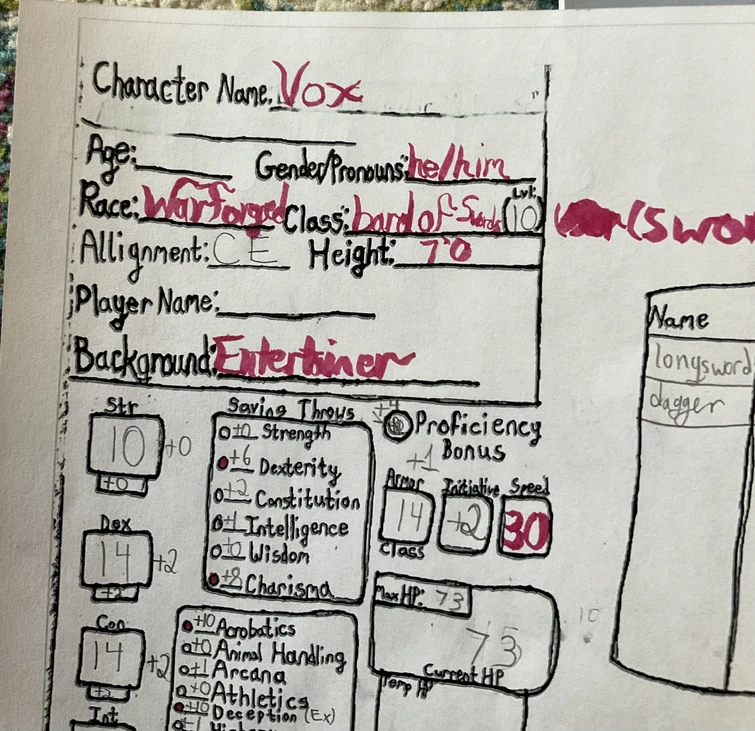 Character Name: Vox
Age: Gender/Pronouns: he/him
Race: Warforged Class: bard of Swords Lvl: 10
Allignment: CE Height: 7'0
Player Name:
Background: Entertainer
Str
10 +0
+0
Dex
14 +2
+2
Con
14 +2
+2
Int
Saving Throws
+0 Strength
+6 Dexterity
+2 Constitution
+1 Intelligence
+0 Wisdom
+8 Charisma
+4 Proficiency
+1 Bonus
Armor Class 14
Initiative +2
Speed 30
Max HP: 73
73
Current HP
Temp HP
+10 Acrobatics
+0 Animal Handling
+1 Arcana
+0 Athletics
+10 Deception (Ex)
10
Name
longsword
dagger